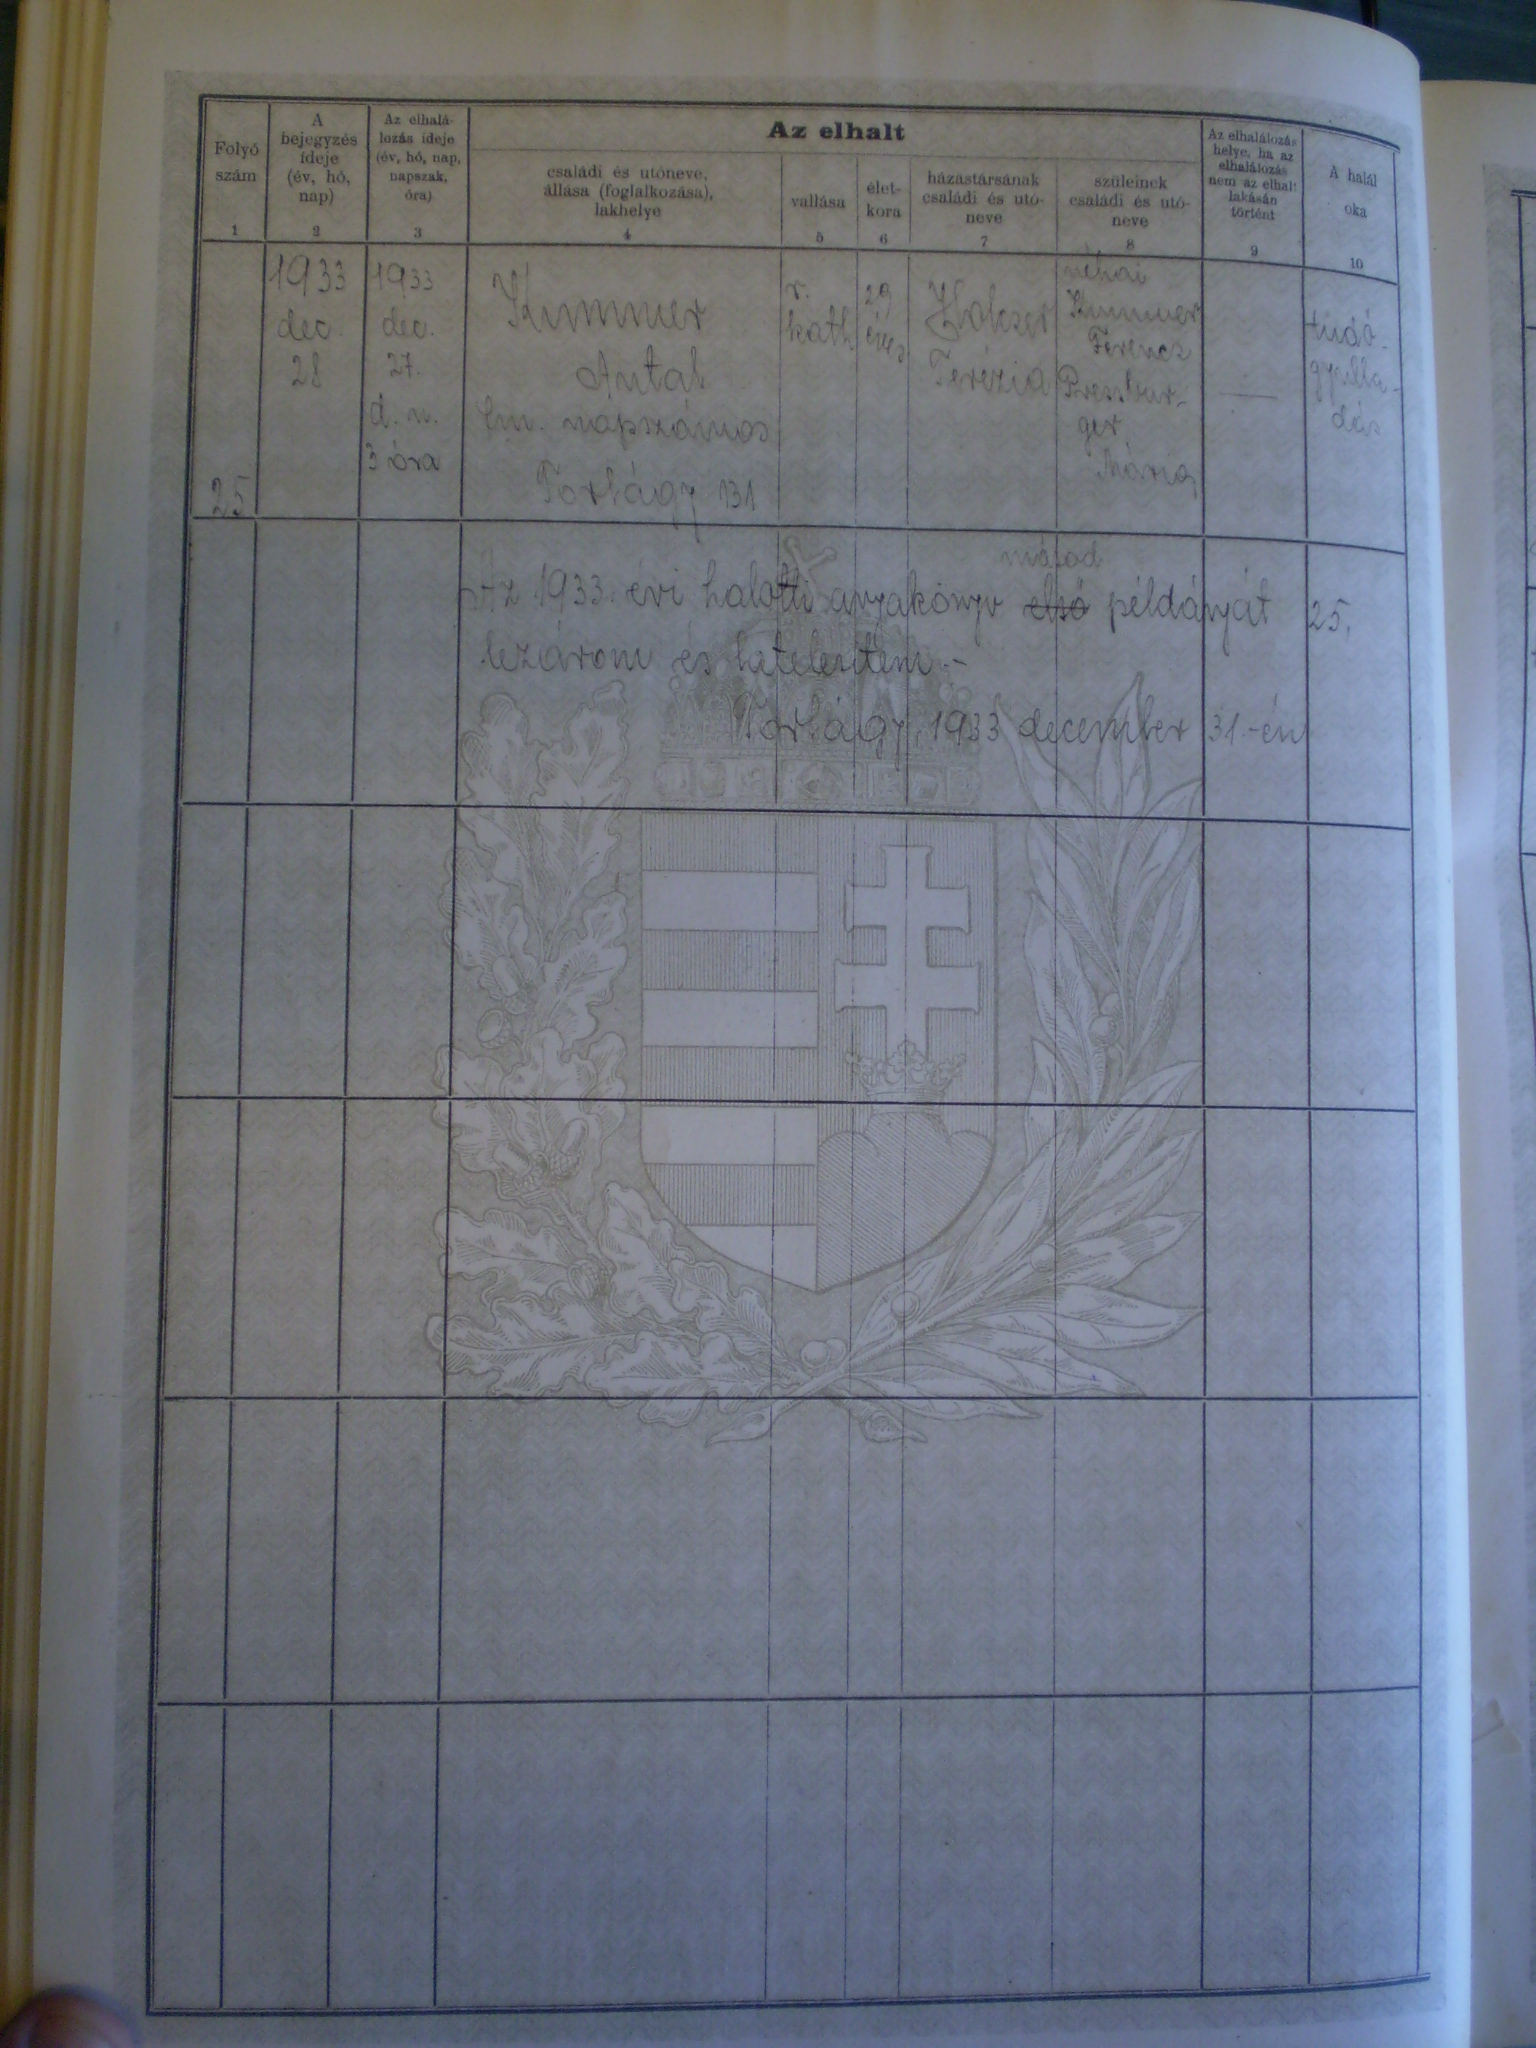 Az elhalt
Folyó
szám
1
A
bejegyzés
ideje
(év, hó,
nap)
2
Az elhalá-
lozás ideje
(év, hó, nap,
napszak,
óra)
3
családi és utóneve,
állása (foglalkozása),
lakhelye
4
vallása
5
élet-
kora
6
házastársának
családi és utó-
neve
7
szüleinek
családi és utó-
neve
8
Az elhalálozás
helye, ha az
elhalálozás
nem az elhalt
lakásán
történt
9
A halál
oka
10
25
1933
dec.
28
1933
dec.
27.
d. u.
3 óra
Kummer
Antal
napszámos
Torbágy 131
r.
kath.
29
éves
Terézia
néhai
Kummer
Ferencz
Presbur-
ger
Mária
—
tüdő-
gyulla-
dás
másod
Az 1933. évi halotti anyakönyv első példányát 25,
lezárom és hitelesítem.-
Torbágy, 1933 december 31.-én